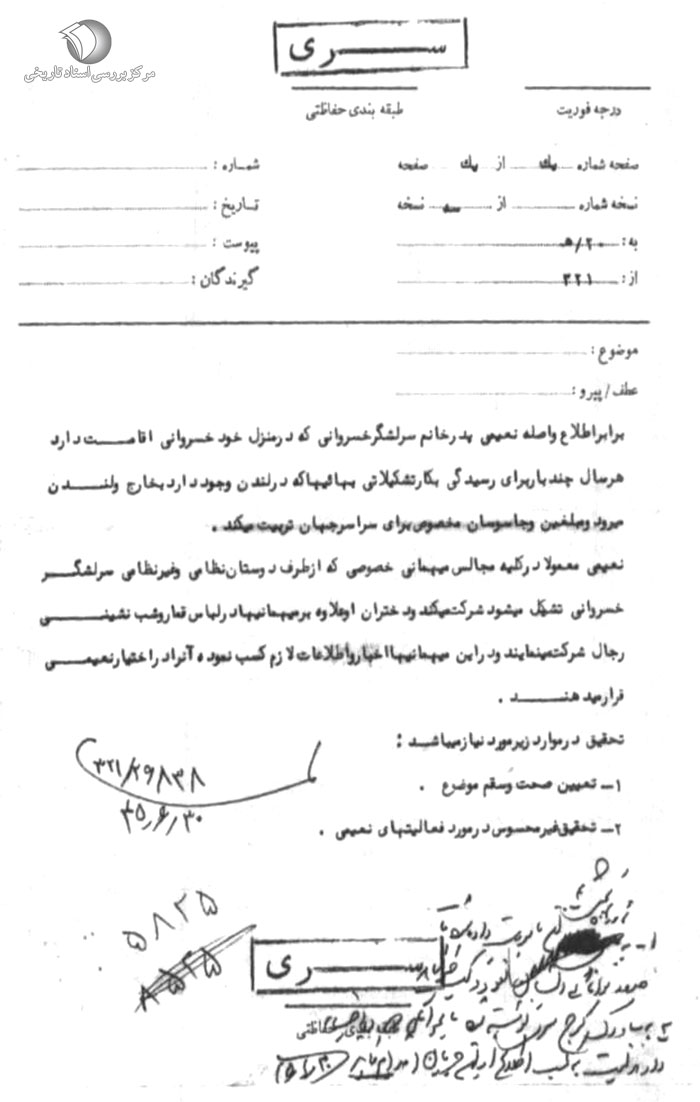 مرکز بررسی اسناد تاریخی
ســـری
درجه فوریت
طبقه بندی حفاظتی
صفحه شماره یک از یک صفحه
شماره :
نسخه شماره از سه نسخه
تاریخ :
به : ۲۰ / ه
پیوست :
از : ۳۲۱
گیرندگان :
موضوع :
عطف / پیرو :
برابر اطلاع واصله نعیمی پدر خانم سرلشگر خسروانی که در منزل خود خسروانی اقامت دارد
هرسال چند بار برای رسیدگی بکار تشکیلاتی بهائیها که در لندن وجود دارد بخارج ولندن
میرود ومبلغین وجاسوسان مخصوص برای سراسر جهان تربیت میکند .
نعیمی معمولا در کلیه مجالس میهمانی خصوصی که از طرف دوستان نظامی وغیر نظامی سرلشگر
خسروانی تشکیل میشود شرکت میکند ودختران او علاوه بر میهمانیها در لباس قمار وشب نشینی
رجال شرکت مینمایند ودر این میهمانیها اخبار واطلاعات لازم کسب نموده آنرا در اختیار نعیمی
قرار میدهند .
تحقیق در موارد زیر مورد نیاز میباشد :
۱ــ تعیین صحت وسقم موضوع .
۲ــ تحقیق غیر محسوس در مورد فعالیتهای نعیمی .
۳۲۱/۲۹۸۳۸
۴۵/۶/۳۰
۵۸۲۵
ســـری
طبقه بندی حفاظتی